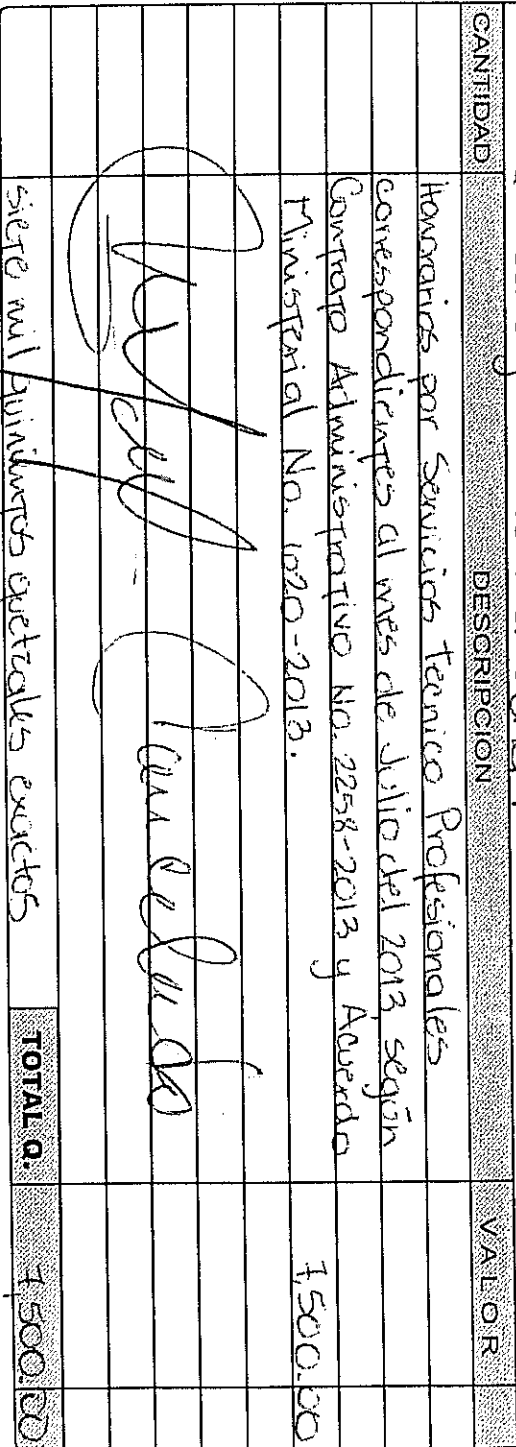 CANTIDAD DESCRIPCION VALOR
Honorarios por Servicios Tecnico Profesionales
correspondientes al mes de Julio del 2013, según
Contrato Administrativo No. 2258-2013 y Acuerdo
Ministerial No. 1020-2013. 7,500.00
Cancelado
siete mil quinientos quetzales exactos TOTAL Q. 7,500.00